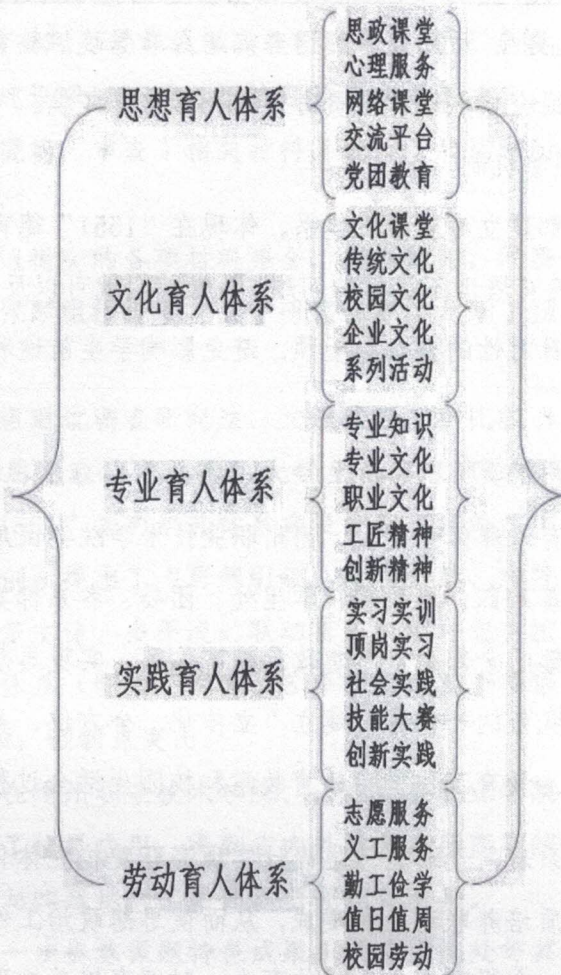 思想育人体系
思政课堂
心理服务
网络课堂
交流平台
党团教育
文化育人体系
文化课堂
传统文化
校园文化
企业文化
系列活动
专业育人体系
专业知识
专业文化
职业文化
工匠精神
创新精神
实践育人体系
实习实训
顶岗实习
社会实践
技能大赛
创新实践
劳动育人体系
志愿服务
义工服务
勤工俭学
值日值周
校园劳动